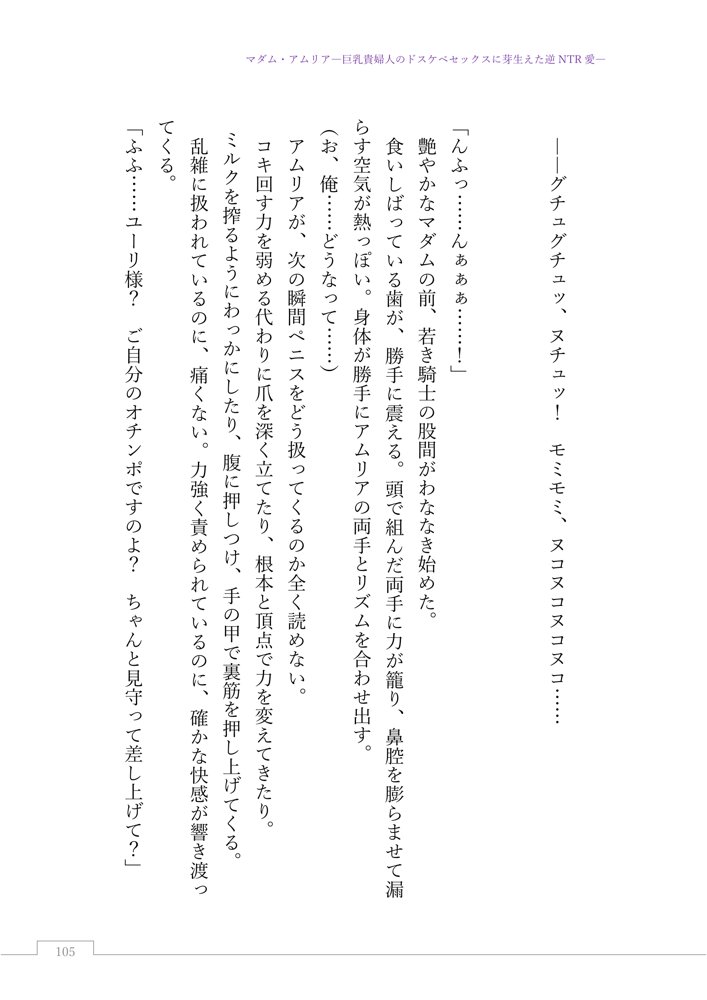 マダム・アムリア―巨乳貴婦人のドスケベセックスに芽生えた逆NTR愛―
――グチュグチュッ、ヌチュッ!　モミモミ、ヌコヌコヌコヌコ……
「んふっ……んぁぁぁ……!」
艶やかなマダムの前、若き騎士の股間がわななき始めた。
食いしばっている歯が、勝手に震える。頭で組んだ両手に力が籠り、鼻腔を膨らませて漏
らす空気が熱っぽい。身体が勝手にアムリアの両手とリズムを合わせ出す。
(お、俺……どうなって……)
アムリアが、次の瞬間ペニスをどう扱ってくるのか全く読めない。
コキ回す力を弱める代わりに爪を深く立てたり、根本と頂点で力を変えてきたり。
ミルクを搾るようにわっかにしたり、腹に押しつけ、手の甲で裏筋を押し上げてくる。
乱雑に扱われているのに、痛くない。力強く責められているのに、確かな快感が響き渡っ
てくる。
「ふふ……ユーリ様?　ご自分のオチンポですのよ?　ちゃんと見守って差し上げて?」
105